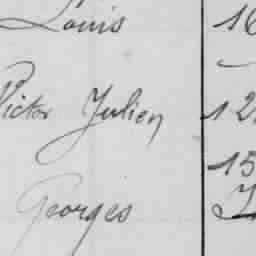 Louis 16
Victor Julien 12
15
Georges